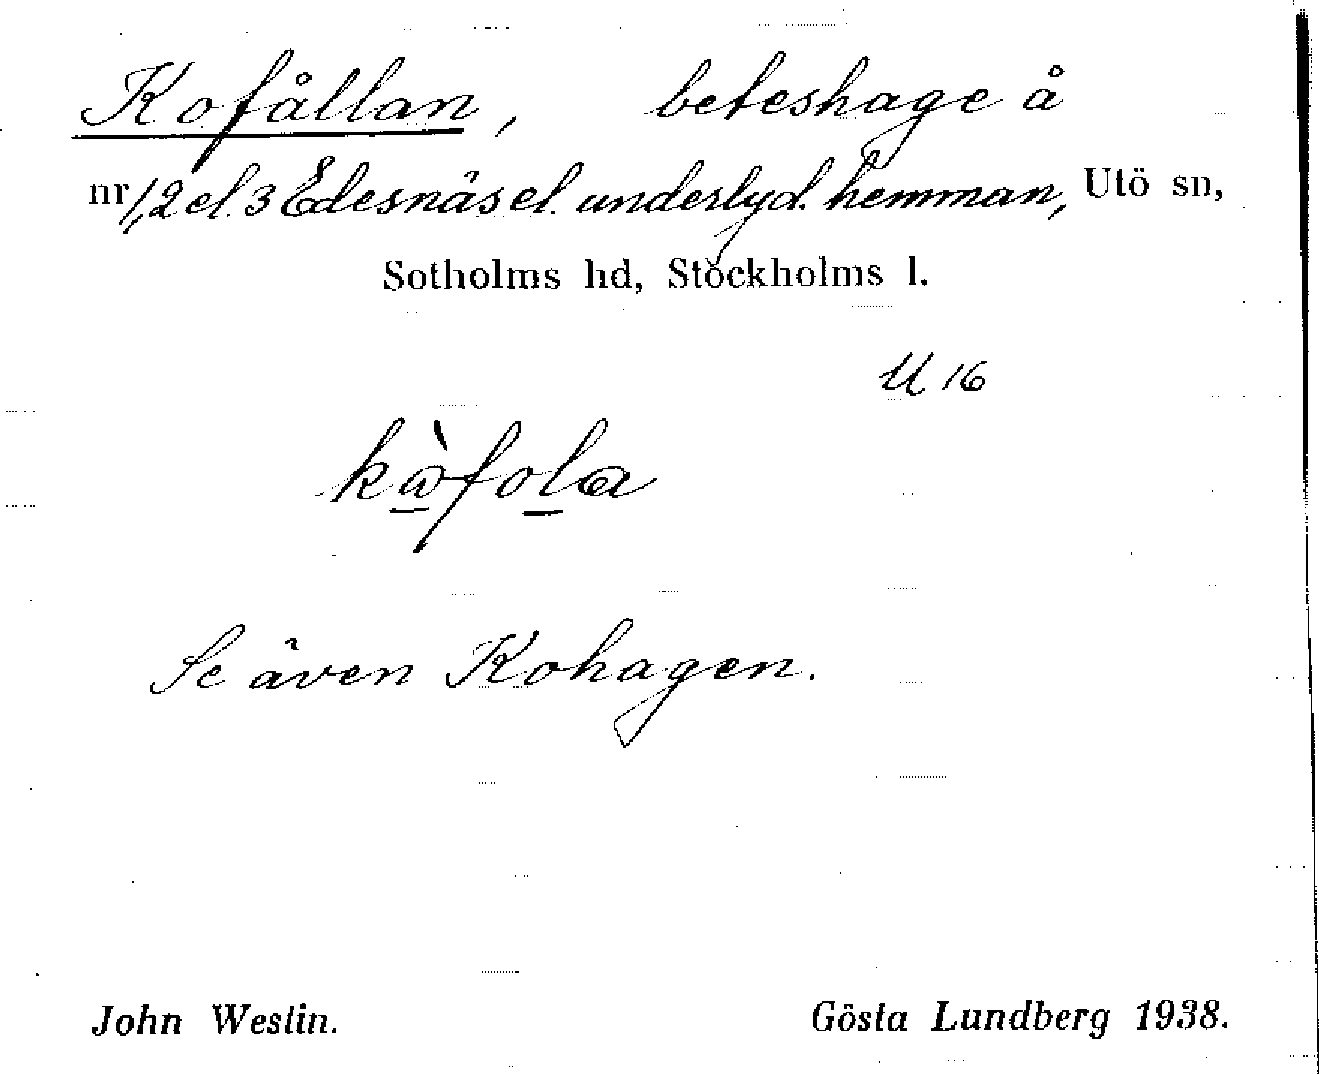 Kofållan, beteshage å
nr 1,2 el. 3 Edesnäs el. underlyd. hemman, Utö sn,
Sotholms hd, Stockholms l.
U 16
kὼfola
Se även Kohagen.
John Westin.
Gösta Lundberg 1938.